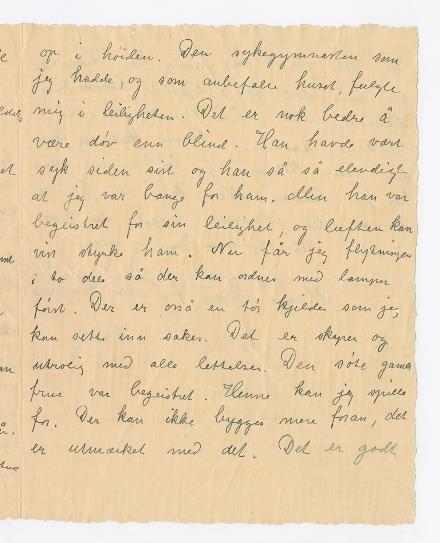 op i høiden. Den sykegymnasten som
jeg hadde, og som anbefalte huset, fulgte
mig i leiligheten. Det er nok bedre å
være døv enn blind. Han havde vært
syk siden sist og han så så elendigt
at jeg var bange for ham. Men han var
begeistret for sin leilighet, og luften kan
vin styrke ham. Nu får jeg flytningen
i to dele så der kan ordnes med lamper
først. Der er også en tør kjelder som jeg
kan sette inn saker. Det er skaper og
utrolig med alle lettelser. Den søte gamle
frue var begeistret. Henne kan jeg spille
for. Der kan ikke bygges mere foran, det
er utmærket med det. Det er godt